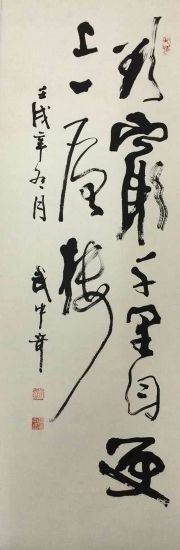 欲穷千里目更
上一层楼
壬戌年冬月 武中奇